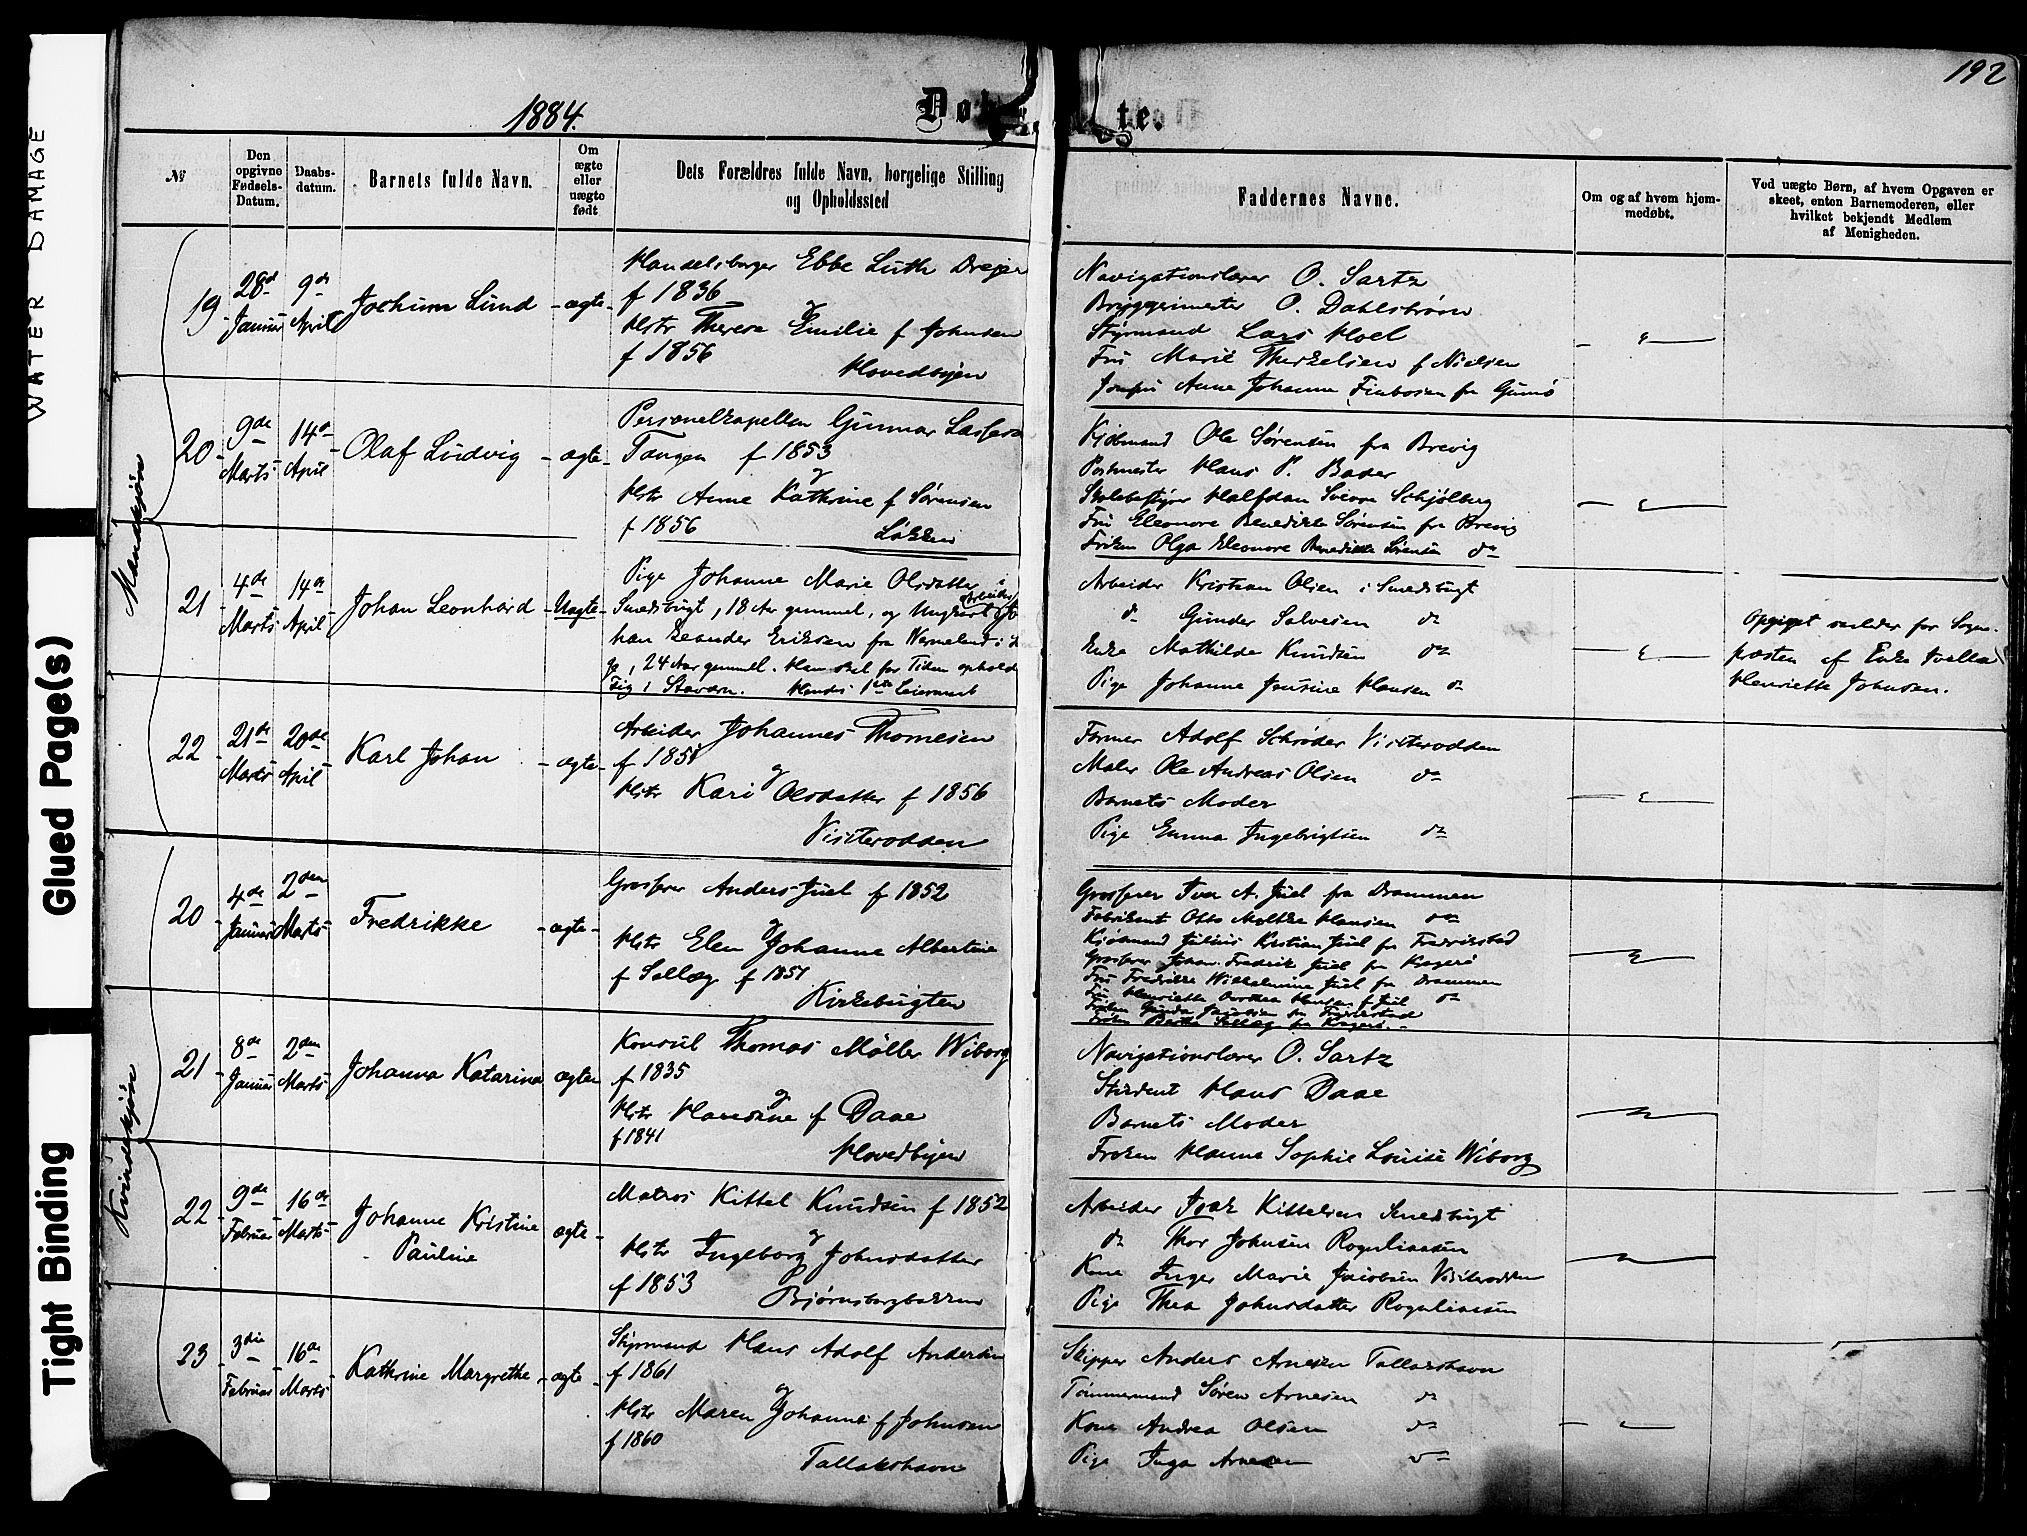 192
1884.
Døbte.
WATER DAMAGE
Glued Page(s)
Tight Binding
№
Den opgivne Fødsels-Datum.
Daabs-datum.
Barnets fulde Navn.
Om ægte eller uægte født
Dets Forældres fulde Navn, borgelige Stilling og Opholdssted
Faddernes Navne.
Om og af hvem hjem-medøbt.
Ved uægte Børn, af hvem Opgaven er skeet, enten Barnemoderen, eller hvilket bekjendt Medlem af Menigheden.
Mandskjøn
19 28d Januar 9de April Jochum Lund ægte
Handelsborger Ebbe Luth Drejer
f 1836
og
Hstr Theresa Emilie f Johnsen
f 1856
Hovedbyen
Navigationslærer O. Sartz
Bryggerimester O. Dahlstrøm
Styrmand Lars Hoel
Fru Marie Therkelsen f Nielsen
Jomfru Anne Johanne Finbosen fra Gumø
20 9de Marts 14de April Olaf Ludvig ægte
Personelkapellan Gunnar Lassesen
Tangen f 1853
og
Hstr Anne Kathrine f Sørensen
f 1856
Løkken
Kjøbmand Ole Sørensen fra Brevig
Postmester Hans P. Bader
Skolebestyrer Halfdan Sverre Schjølberg
Fru Eleonore Benedikte Sørensen fra Brevig
Frøken Olga Eleonore Benedikte Sørensen do
21 4de Marts 14de April Johan Leonhard Uægte
Pige Johanne Marie Olsdatter i
Smedsbugt, 18 Aar gammel, og Ungkarl Arbeider Jo-
han Leander Eriksen fra Wermeland i Sve-
ge, 24 Aar gammel. Han skal for Tiden opholde
sig i Stavern. Hendes 1ste Leiermaal
Arbeider Kristian Olsen i Smedsbugt
do Gunder Salvesen do
Enke Mathilde Knudsen do
Pige Johanne Jensine Hansen do
Opgivet saaledes for Sogne-
præsten af Enke
Henriette Johnsen.
22 21de Marts 20de April Karl Johan ægte
Arbeider Johannes Thomesen
f 1851
og
Hstr Kari Olsdatter f 1856
Visiterodden
Former Adolf Schrøder Visiterodden
Maler Ole Andreas Olsen do
Barnets Moder
Pige Emma Ingebrigtsen do
Kvindekjøn
20 4de Januar 2den Marts Fredrikke ægte
Grosserer Anders Juel f 1852
og
Hstr Elen Johanne Albertine
f Selleg f 1857
Kirkebugten
Grosserer Iver A. Juel fra Drammen
Fabrikant Otto Moltke Hansen do
Kjøbmand Julius Kristian Juel fra Fredrikstad
Grosserer Johan Fredrik Juel fra Kragerø
Fru Fredrikke Wilhelmine Juel fra Drammen
Fru Henriette Dorthea Hansen f Juel do
Frøken Gunda Jacobsen fra Fredrikstad
Frøken Berthe Selleg fra Kragerø.
21 8de Januar 2den Marts Johanna Katarina ægte
Konsul Thomas Møller Wiborg
f 1835
og
Hstr Hansine f Daae
f 1841
Hovedbyen
Navigationslærer O. Sartz
Student Hans Daae
Barnets Moder
Frøken Hanne Sophie Louise Wiborg
22 9de Februar 16de Marts Johanne Kristine Pauline ægte
Matros Kittel Knudsen f 1852
og
Hstr Ingeborg Johnsdatter
f 1853
Bjørnsborgbakken
Arbeider Isak Kittelsen Smedsbugt
do Thor Johnsen Rognliaasen
Kone Inger Marie Jacobsen Visiterodden
Pige Thea Johnsdatter Rognliaasen
23 3die Februar 16de Marts Kathrine Margrethe ægte
Styrmand Hans Adolf Andersen
f 1861
og
Hstr Maren Johanne f Johnsen
f 1860
Tallakshavn
Skipper Anders Arnesen Tallakshavn
Tømmermand Søren Arnesen do
Kone Andrea Olsen do
Pige Inga Arnesen do